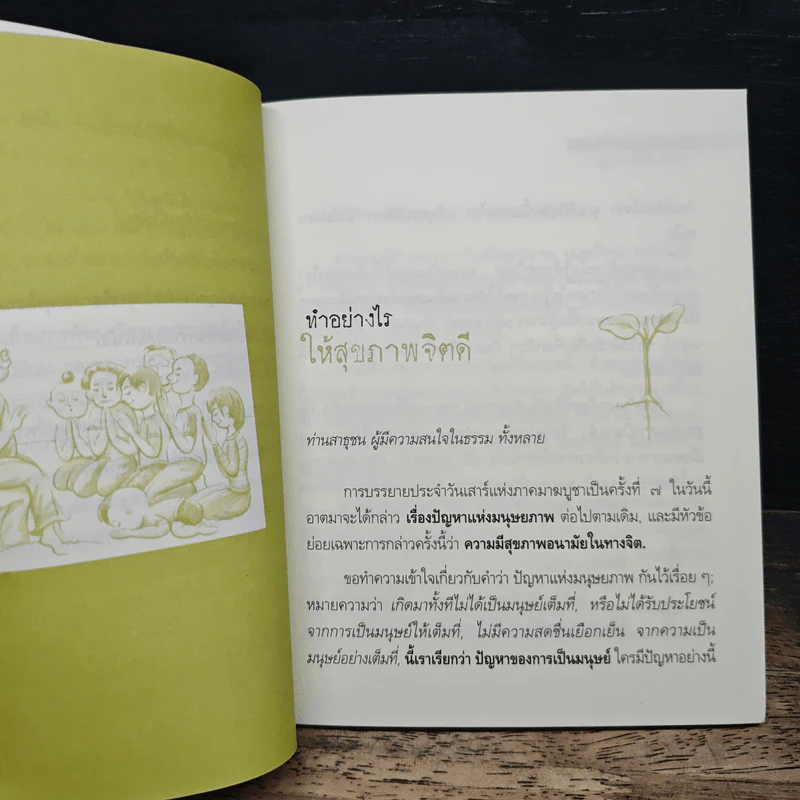 ทำอย่างไร
ให้สุขภาพจิตดี
ท่านสาธุชน ผู้มีความสนใจในธรรม ทั้งหลาย
การบรรยายประจำวันเสาร์แห่งภาคมาฆบูชาเป็นครั้งที่ ๗ ในวันนี้
อาตมาจะได้กล่าว เรื่องปัญหาแห่งมนุษยภาพ ต่อไปตามเดิม, และมีหัวข้อ
ย่อยเฉพาะการกล่าวครั้งนี้ว่า ความมีสุขภาพอนามัยในทางจิต.
ขอทำความเข้าใจเกี่ยวกับคำว่า ปัญหาแห่งมนุษยภาพ กันไว้เรื่อย ๆ;
หมายความว่า เกิดมาทั้งทีไม่ได้เป็นมนุษย์เต็มที่, หรือไม่ได้รับประโยชน์
จากการเป็นมนุษย์ให้เต็มที่, ไม่มีความสดชื่นเยือกเย็น จากความเป็น
มนุษย์อย่างเต็มที่, นี้เราเรียกว่า ปัญหาของการเป็นมนุษย์ ใครมีปัญหาอย่างนี้